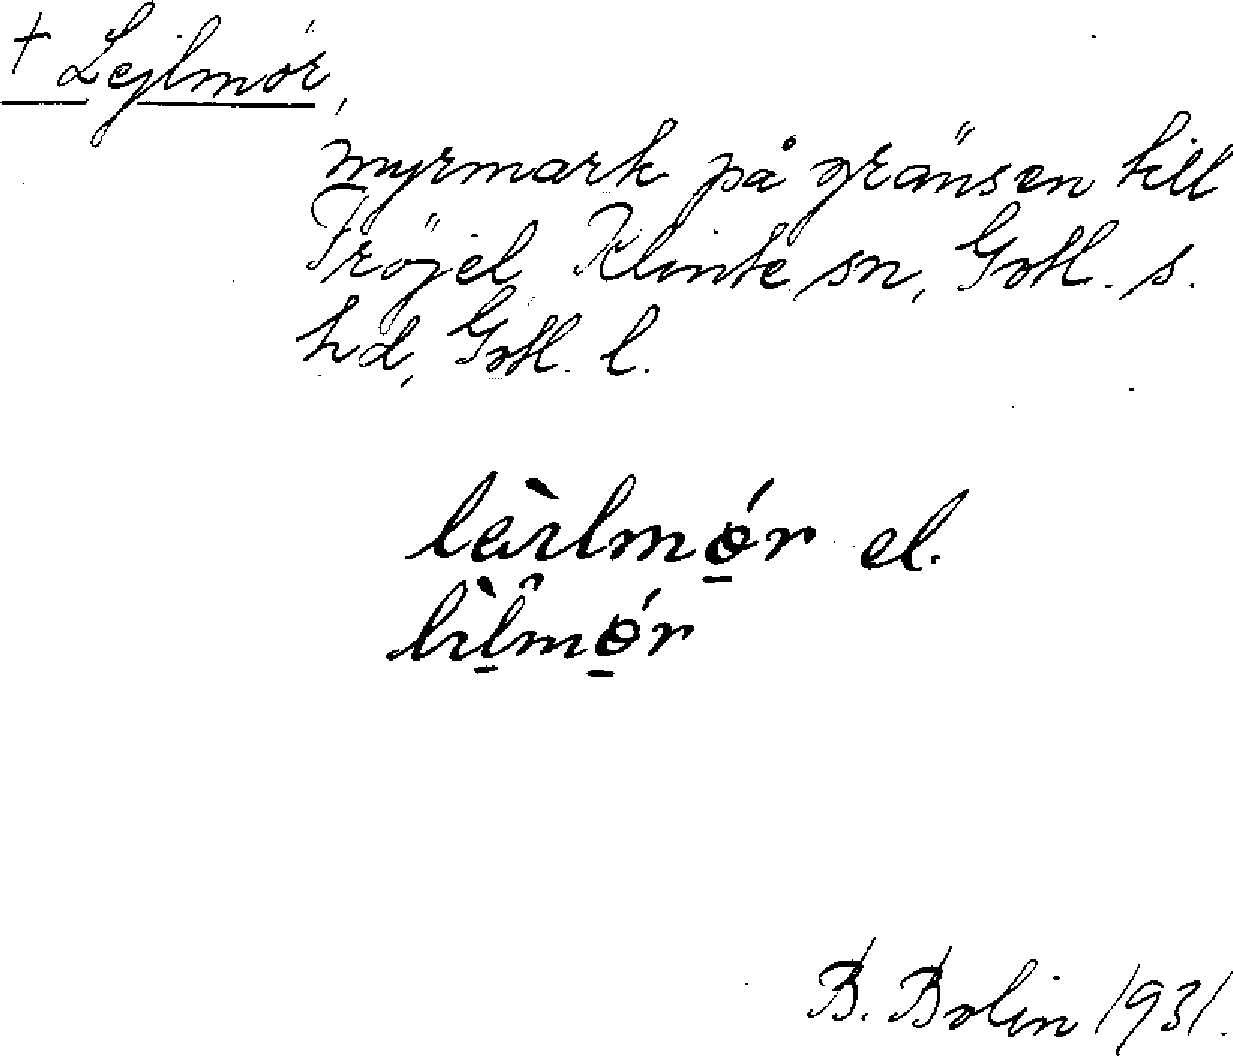 † Lejlmör,
myrmark på gränsen till
Fröjel, Klinte sn, Gotl. s.
hd, Gotl. l.
el.
B. Bolin 1931.